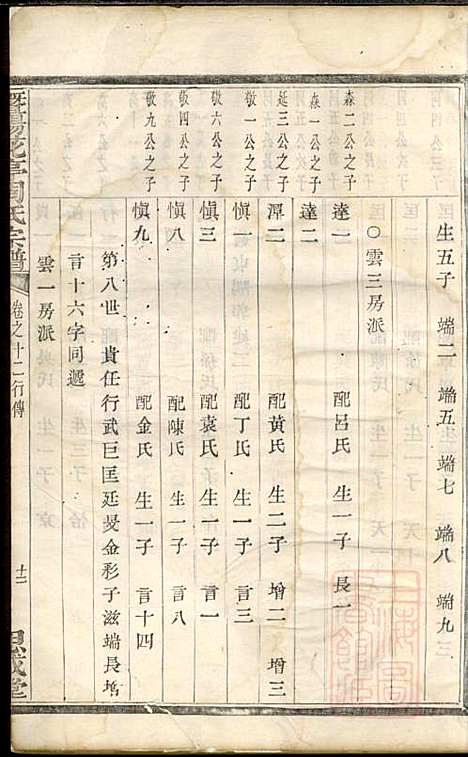 生五子 端二 端五 端七 端八 端九
〇雲三房派
森二公之子 逵一 配呂氏 生一子 長一
森一公之子 達二
延三公之子 潭二 配黃氏 生二子 增二 增三
敬一公之子 愼一 配丁氏 生一子 言三
敬六公之子 愼三 配袁氏 生一子 言一
敬四公之子 愼八 配陳氏 生一子 言八
敬九公之子 愼九 配金氏 生一子 言十四
第八世 貴任行武巨匡延旻金彩子滋端長增
言十六字同遞
雲一房派
暨陽花亭周氏宗譜 卷之廿二行傳 十二 思成堂